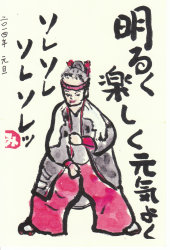 明るく
楽しく元気よく
ソレソレ
ソレソレソレッ
二〇一四年 元旦